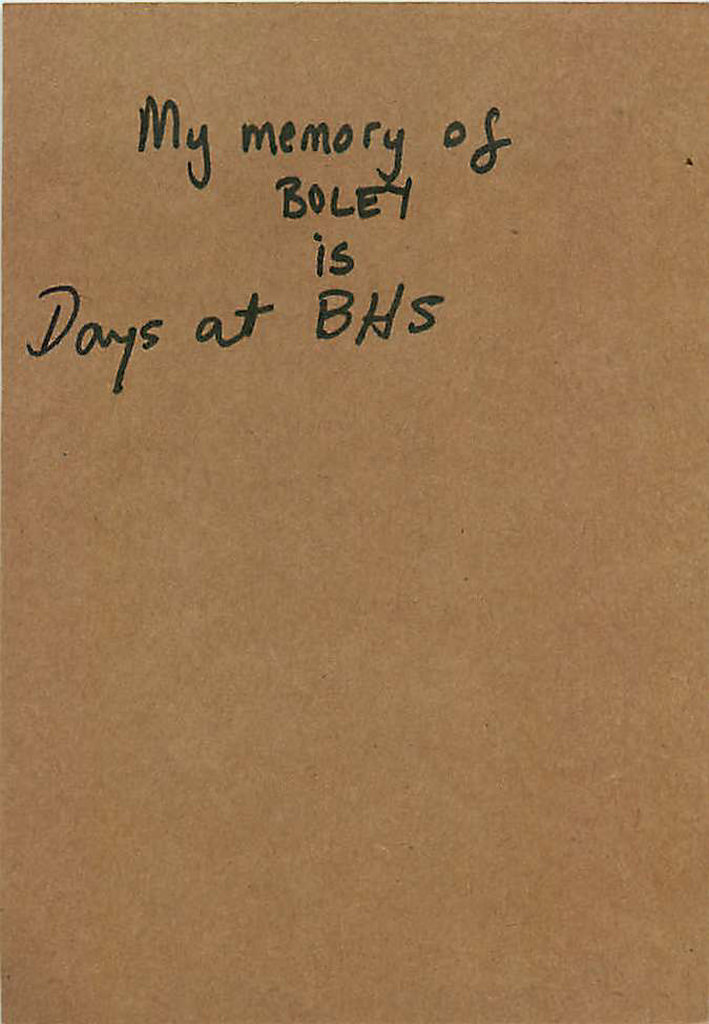 My memory of
BOLEY
is
Days at BHS